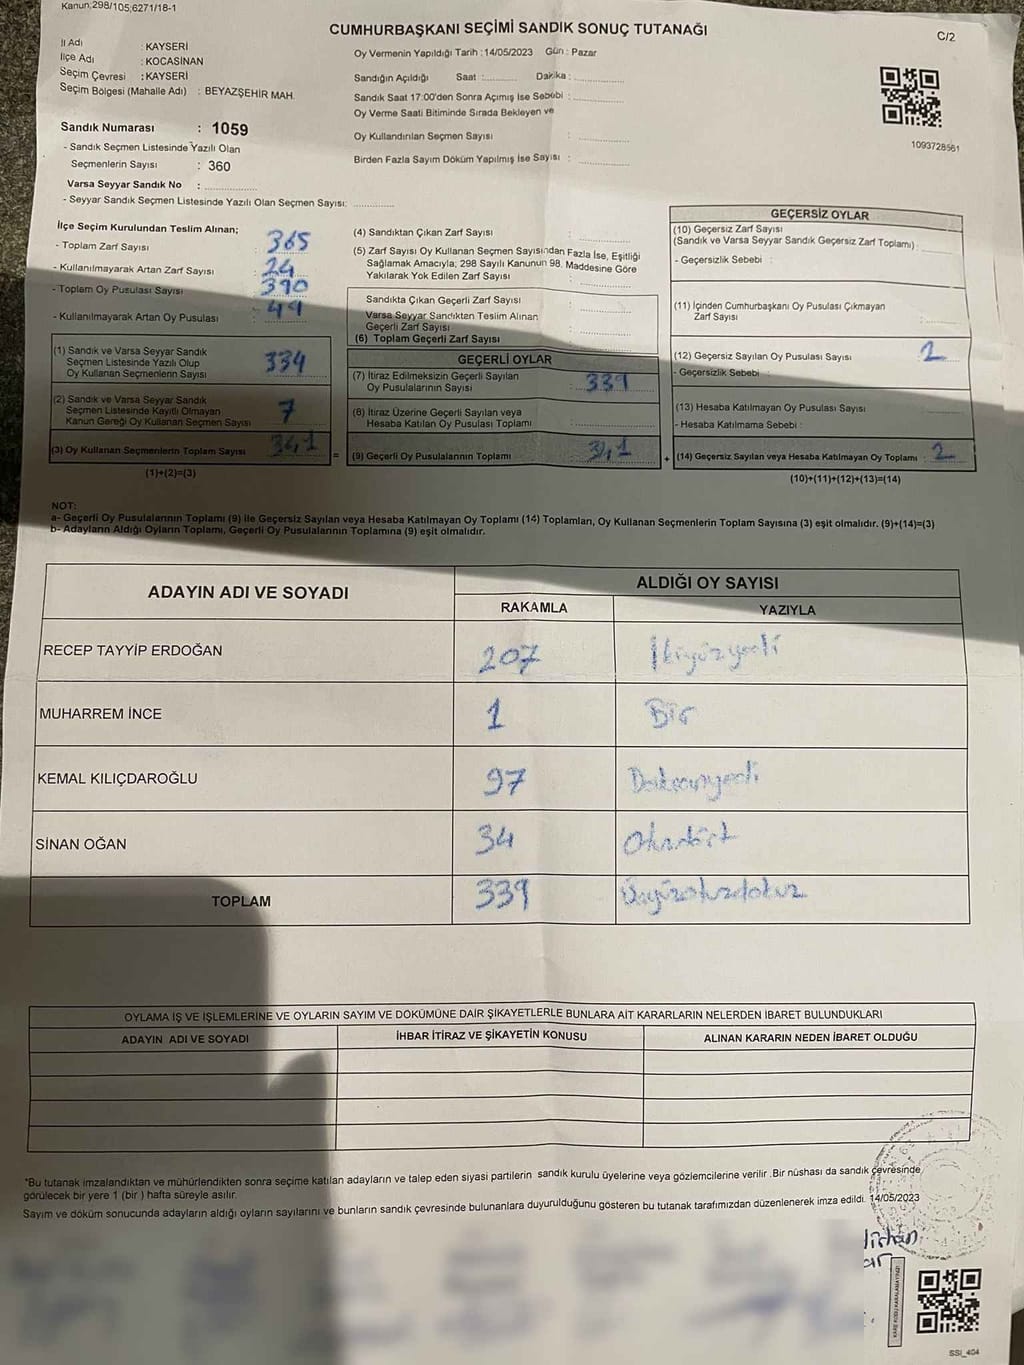 Kanun;298/105;6271/18-1
CUMHURBAŞKANI SEÇİMİ SANDIK SONUÇ TUTANAĞI
C/2
İl Adı : KAYSERİ
İlçe Adı : KOCASİNAN
Seçim Çevresi : KAYSERİ
Seçim Bölgesi (Mahalle Adı) : BEYAZŞEHİR MAH.
Oy Vermenin Yapıldığı Tarih : 14/05/2023 Gün : Pazar
Sandığın Açıldığı Saat :.......... Dakika :..............
Sandık Saat 17:00'den Sonra Açımış İse Sebebi :..............
Oy Verme Saati Bitiminde Sırada Bekleyen ve
Oy Kullandırılan Seçmen Sayısı :..............
Birden Fazla Sayım Döküm Yapılmış İse Sayısı :..............
1093728561
Sandık Numarası : 1059
- Sandık Seçmen Listesinde Yazılı Olan
Seçmenlerin Sayısı : 360
Varsa Seyyar Sandık No :..............
- Seyyar Sandık Seçmen Listesinde Yazılı Olan Seçmen Sayısı:..............
İlçe Seçim Kurulundan Teslim Alınan;
- Toplam Zarf Sayısı : 365
- Kullanılmayarak Artan Zarf Sayısı : 24
- Toplam Oy Pusulası Sayısı : 390
- Kullanılmayarak Artan Oy Pusulası : 49
(1) Sandık ve Varsa Seyyar Sandık
Seçmen Listesinde Yazılı Olup
Oy Kullanan Seçmenlerin Sayısı 334
(2) Sandık ve Varsa Seyyar Sandık
Seçmen Listesinde Kayıtlı Olmayan
Kanun Gereği Oy Kullanan Seçmen Sayısı 7
(3) Oy Kullanan Seçmenlerin Toplam Sayısı 341
(1)+(2)=(3)
(4) Sandıktan Çıkan Zarf Sayısı :..............
(5) Zarf Sayısı Oy Kullanan Seçmen Sayısından Fazla İse, Eşitliği
Sağlamak Amacıyla; 298 Sayılı Kanunun 98. Maddesine Göre
Yakılarak Yok Edilen Zarf Sayısı :..............
Sandıkta Çıkan Geçerli Zarf Sayısı :..............
Varsa Seyyar Sandıktan Teslim Alınan
Geçerli Zarf Sayısı :..............
(6) Toplam Geçerli Zarf Sayısı
GEÇERLİ OYLAR
(7) İtiraz Edilmeksizin Geçerli Sayılan
Oy Pusulalarının Sayısı : 339
(8) İtiraz Üzerine Geçerli Sayılan veya
Hesaba Katılan Oy Pusulası Toplamı :..............
= (9) Geçerli Oy Pusulalarının Toplamı : 341
GEÇERSİZ OYLAR
(10) Geçersiz Zarf Sayısı
(Sandık ve Varsa Seyyar Sandık Geçersiz Zarf Toplamı) :
- Geçersizlik Sebebi :
(11) İçinden Cumhurbaşkanı Oy Pusulası Çıkmayan
Zarf Sayısı :
(12) Geçersiz Sayılan Oy Pusulası Sayısı : 2
- Geçersizlik Sebebi :
(13) Hesaba Katılmayan Oy Pusulası Sayısı :
- Hesaba Katılmama Sebebi :
+ (14) Geçersiz Sayılan veya Hesaba Katılmayan Oy Toplamı : 2
(10)+(11)+(12)+(13)=(14)
NOT:
a- Geçerli Oy Pusulalarının Toplamı (9) ile Geçersiz Sayılan veya Hesaba Katılmayan Oy Toplamı (14) Toplamları, Oy Kullanan Seçmenlerin Toplam Sayısına (3) eşit olmalıdır. (9)+(14)=(3)
b- Adayların Aldığı Oyların Toplamı, Geçerli Oy Pusulalarının Toplamına (9) eşit olmalıdır.
ADAYIN ADI VE SOYADI ALDIĞI OY SAYISI
RAKAMLA YAZIYLA
RECEP TAYYİP ERDOĞAN 207 İkiyüzyedi
MUHARREM İNCE 1 Bir
KEMAL KILIÇDAROĞLU 97 Doksanyedi
SİNAN OĞAN 34 Otuzdört
TOPLAM 339 Üçyüzotuzdokuz
OYLAMA İŞ VE İŞLEMLERİNE VE OYLARIN SAYIM VE DÖKÜMÜNE DAİR ŞİKAYETLERLE BUNLARA AİT KARARLARIN NELERDEN İBARET BULUNDUKLARI
ADAYIN ADI VE SOYADI İHBAR İTİRAZ VE ŞİKAYETİN KONUSU ALINAN KARARIN NEDEN İBARET OLDUĞU
*Bu tutanak imzalandıktan ve mühürlendikten sonra seçime katılan adayların ve talep eden siyasi partilerin sandık kurulu üyelerine veya gözlemcilerine verilir .Bir nüshası da sandık çevresinde
görülecek bir yere 1 (bir ) hafta süreyle asılır.
Sayım ve döküm sonucunda adayların aldığı oyların sayılarını ve bunların sandık çevresinde bulunanlara duyurulduğunu gösteren bu tutanak tarafımızdan düzenlenerek imza edildi. 14/05/2023
KARE KODU KARALAMAYINIZ!
SSI_404